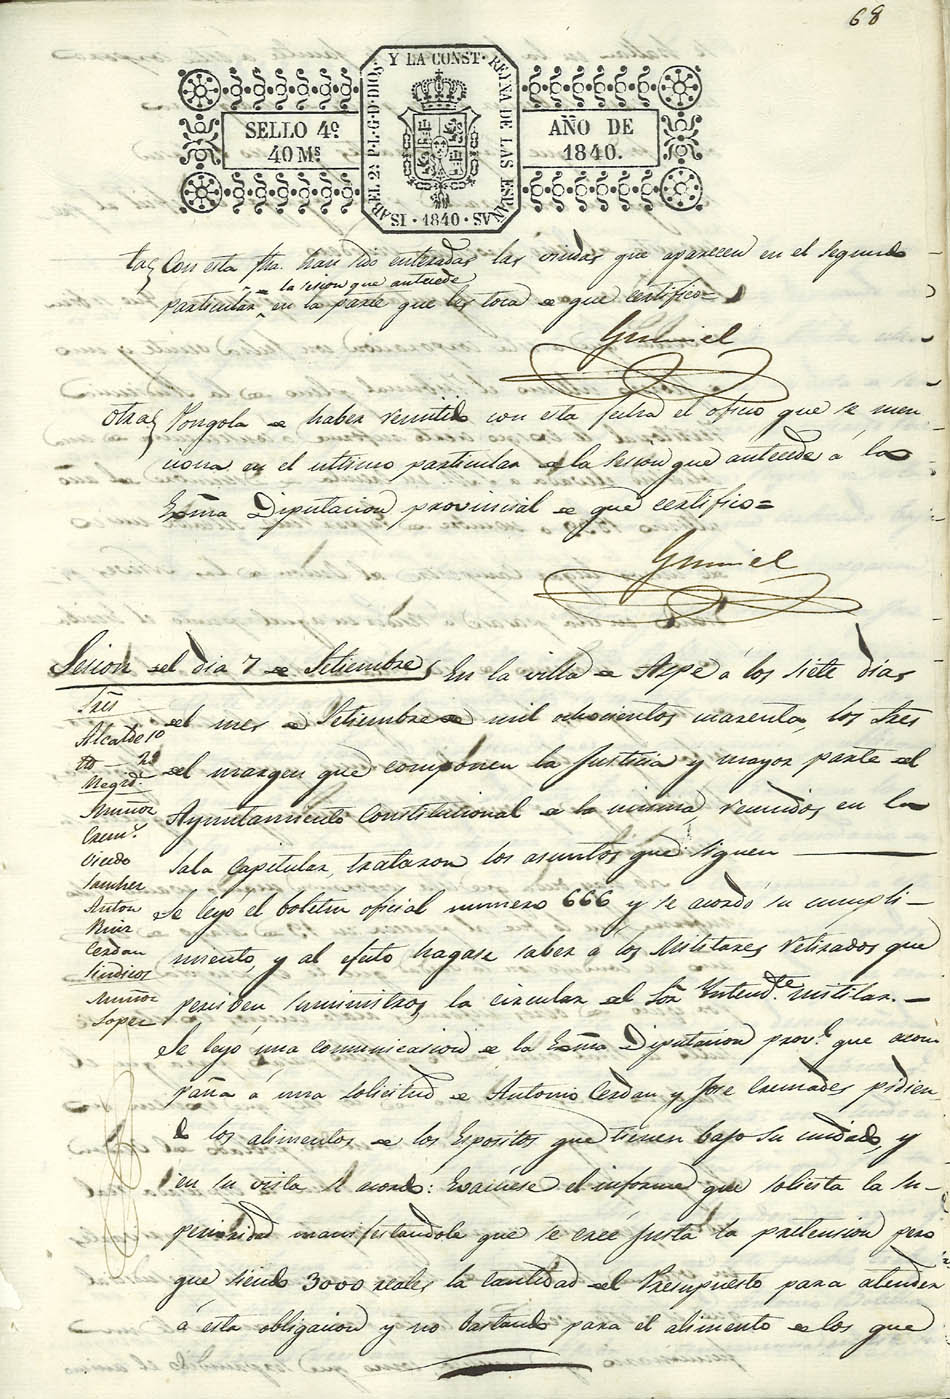 68
ISABEL 2ª P.L.G.D DIOS Y LA CONST. REYNA DE LAS ESPAÑAS
SELLO 4º
40 Ms
AÑO DE
1840.
· 1840 ·
Con esta fha. han sido enteradas las viudas que aparecen en el segundo
de la sesion que antecede
particular, en la parte que les toca de que certifico=
Gumiel
Otra Pongola de haber remitido con esta fecha el oficio que se men
ciona en el ultimo particular de la sesion que antecede á la
Exma Diputacion provincial de que certifico=
Gumiel
Sesion del dia 7 de Setiembre En la villa de Aspe á los siete dias
Sres
Alcalde 1º
2º
Regid
Muñoz
Crem.
Vicedo
Sanchez
Anton
Ruiz
Cerdan
Sindicos
Muñoz
Lopez
del mes de Setiembre de mil ochocientos cuarenta, los Sres
del margen que componen la Justicia y mayor parte del
Ayuntamiento Constitucional de la misma, reunidos en la
Sala Capitular, trataron los asuntos que siguen
Se leyó el boletin oficial numero 666 y se acordó su cumpli-
miento, y al efecto hagase saber á los Militares retirados que
perciben suministros, la circular del Sor Yntendte militar.-
Se leyó una comunicacion de la Exma Diputacion provl. que acom
paña á una solicitud de Antonio Cerdan y Jose Cremades pidien
do los alimentos de los Espositos que tienen bajo su cuidado, y
en su vista se acordo: Evacuese el informe que solicita la Su-
perioridad manifestandole que se creé justa la pretension pero
que siendo 3000 reales la cantidad del Presupuesto para atender
á esta obligacion y no bastando para el alimento de los que